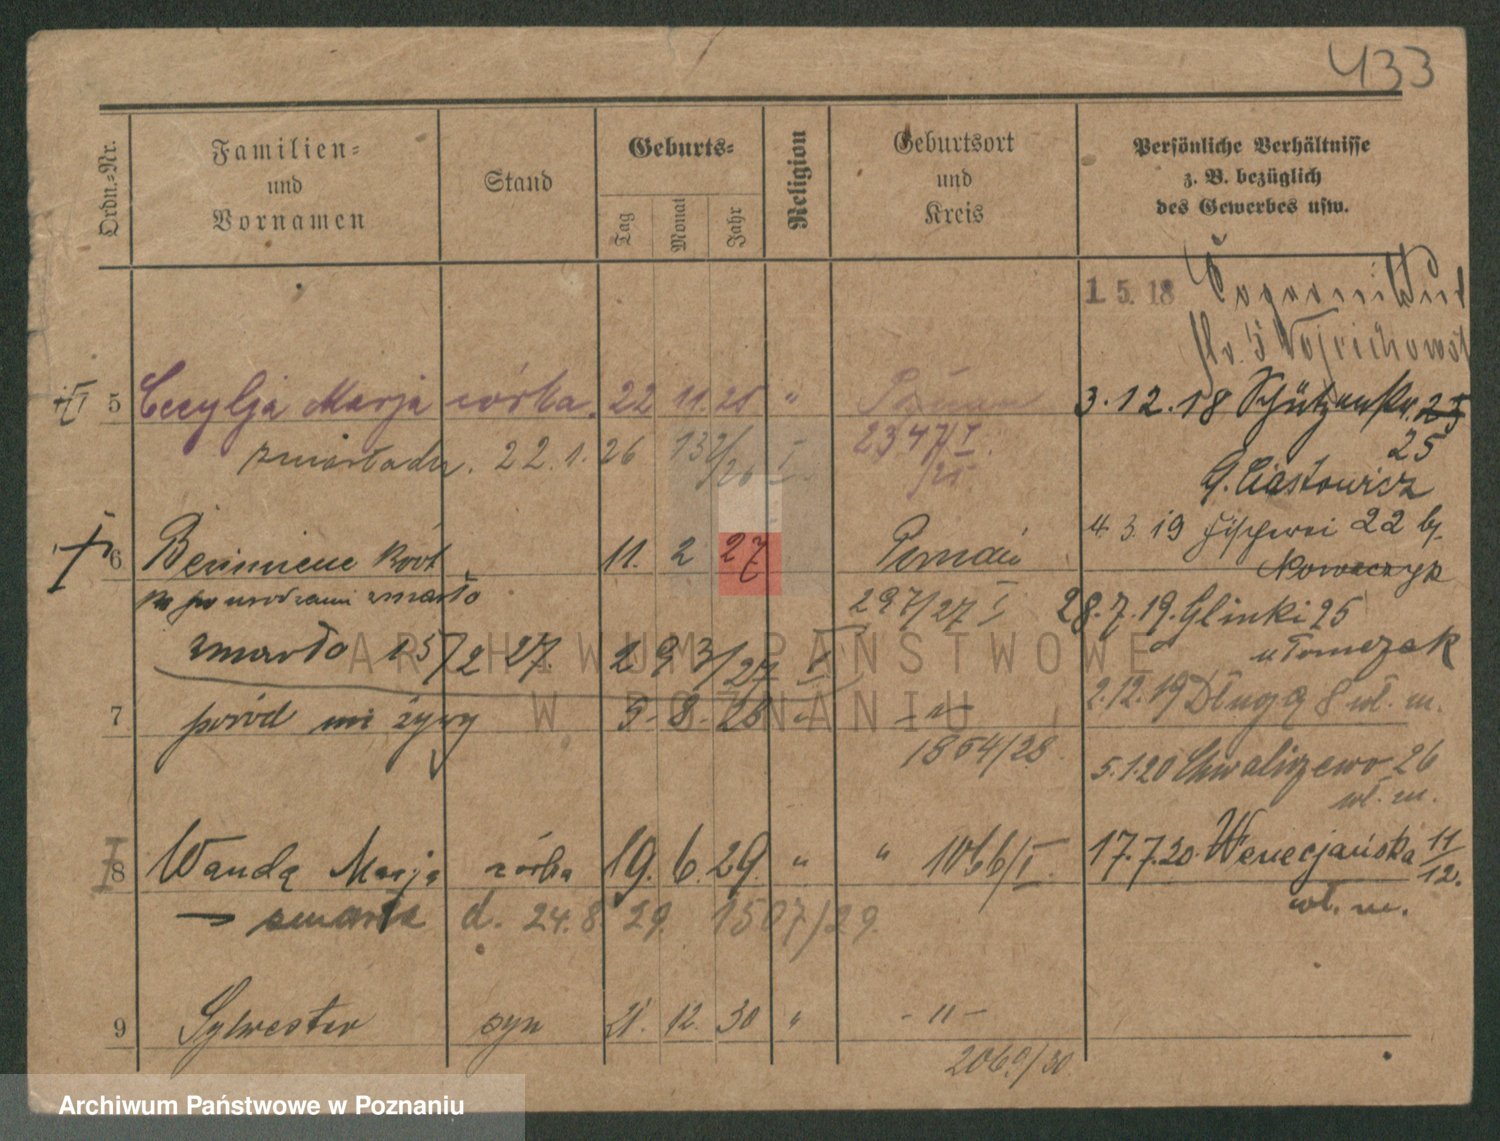 433
Ordn.-Nr.
Familien-
und
Vornamen
Stand
Geburts-
Tag
Monat
Jahr
Religion
Geburtsort
und
Kreis
Persönliche Verhältnisse
z. B. bezüglich
des Gewerbes usw.
1. 5. 18
5 Cecylja Marja córka. 22 11. 25 "
3. 12. 18 Schützenstr. 25
25
zmarła dn. 22. 1. 26 132/26 I
2347/I
25
G. Ciastowicz
6 11. 2 27 Poznań
4. 3. 19 22 by.
Nowaczyk
po urodzeniu zmarło
297/27 I
28. 7. 19. Glinki 25
u Tomczak
zmarło 15/2 27. 293/27 I
7 poród nie żywy 5- 8- 28 " -"-
1854/28
2. 12. 19 Długa 8 wł. m.
5. 1. 20 Chwaliszewo 26
wł. m.
8 Wanda Marja córka 19. 6. 29. " " 1066/I.
17. 7. 20. Wenecjańska 11/12.
wł. m.
zmarła d. 24. 8 29. 1507/29.
9 Sylwester syn 21. 12. 30 " - " -
2069/30
ARCHIWUM PAŃSTWOWE
W POZNANIU
Archiwum Państwowe w Poznaniu